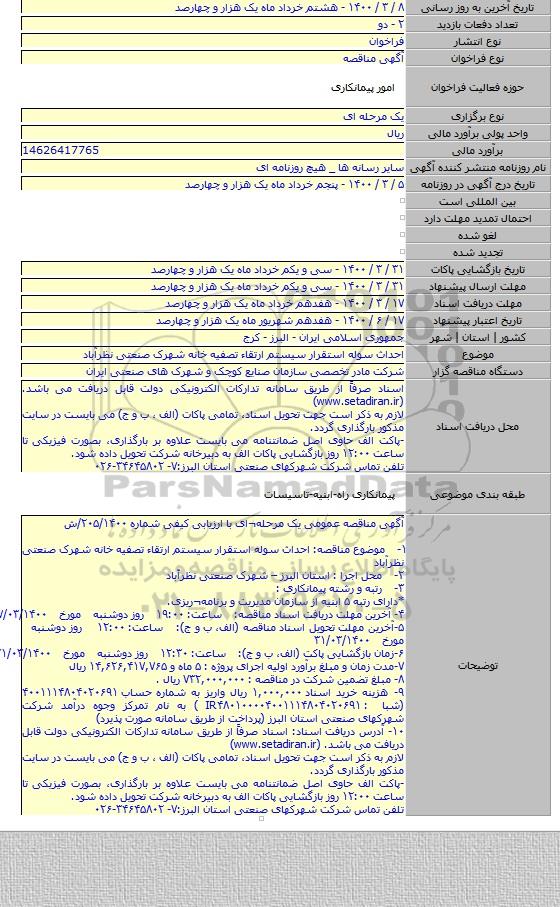 تاریخ آخرین به روز رسانی ۸ / ۳ / ۱۴۰۰ - هشتم خرداد ماه یک هزار و چهارصد
تعداد دفعات بازدید ۲ - دو
نوع انتشار فراخوان
نوع فراخوان آگهی مناقصه
حوزه فعالیت فراخوان امور پیمانکاری
نوع برگزاری یک مرحله ای
واحد پولی برآورد مالی ریال
برآورد مالی 14626417765
نام روزنامه منتشر کننده آگهی سایر رسانه ها _ هیچ روزنامه ای
تاریخ درج آگهی در روزنامه ۵ / ۳ / ۱۴۰۰ - پنجم خرداد ماه یک هزار و چهارصد
بین المللی است
احتمال تمدید مهلت دارد
لغو شده
تجدید شده
تاریخ بازگشایی پاکات ۳۱ / ۳ / ۱۴۰۰ - سی و یکم خرداد ماه یک هزار و چهارصد
مهلت ارسال پیشنهاد ۳۱ / ۳ / ۱۴۰۰ - سی و یکم خرداد ماه یک هزار و چهارصد
مهلت دریافت اسناد ۱۷ / ۳ / ۱۴۰۰ - هفدهم خرداد ماه یک هزار و چهارصد
تاریخ اعتبار پیشنهاد ۱۷ / ۶ / ۱۴۰۰ - هفدهم شهریور ماه یک هزار و چهارصد
کشور | استان | شهر جمهوری اسلامی ایران - البرز - کرج
موضوع احداث سوله استقرار سیستم ارتقاء تصفیه خانه شهرک صنعتی نظرآباد
دستگاه مناقصه گزار شرکت مادر تخصصی سازمان صنایع کوچک و شهرک های صنعتی ایران
محل دریافت اسناد
اسناد صرفاً از طریق سامانه تدارکات الکترونیکی دولت قابل دریافت می باشد.
(www.setadiran.ir)
لازم به ذکر است جهت تحویل اسناد، تمامی پاکات (الف ، ب و ج) می بایست در سایت
مذکور بارگذاری گردد.
-پاکت الف حاوی اصل ضمانتنامه می بایست علاوه بر بارگذاری، بصورت فیزیکی تا
ساعت ۱۲:۰۰ روز بازگشایی پاکات الف به دبیرخانه شرکت تحویل داده شود.
تلفن تماس شرکت شهرکهای صنعتی استان البرز:۷- ۳۴۶۴۵۸۰۲-۰۲۶
طبقه بندی موضوعی پیمانکاری راه-ابنیه-تاسیسات
ParsNamadData
پایگاه اطلاع رسانی مناقصه و مزایده
توضیحات
آگهی مناقصه عمومی یک مرحله¬ای با ارزیابی کیفی شماره ۲۰۵/۱۴۰۰/ش
۱- موضوع مناقصه: احداث سوله استقرار سیستم ارتقاء تصفیه خانه شهرک صنعتی
نظرآباد
۲- محل اجرا : استان البرز – شهرک صنعتی نظرآباد
۳- رتبه و رشته پیمانکاری :
*دارای رتبه ۵ ابنیه از سازمان مدیریت و برنامه¬ریزی.
۴-آخرین مهلت دریافت اسناد مناقصه: ساعت: ۱۹:۰۰ روز دوشنبه مورخ ۷/۰۳/۱۴۰۰
۵-آخرین مهلت تحویل اسناد مناقصه (الف، ب و ج): ساعت: ۱۲:۰۰ روز دوشنبه
مورخ ۳۱/۰۳/۱۴۰۰
۶-زمان بازگشایی پاکت (الف، ب و ج): ساعت: ۱۲:۳۰ روز دوشنبه مورخ ۳۱/۰۳/۱۴۰۰
۷-مدت زمان و مبلغ برآورد اولیه اجرای پروژه : ۵ ماه و ۱۴,۶۲۶,۴۱۷,۷۶۵ ریال
۸- مبلغ تضمین شرکت در مناقصه : ۷۳۲,۰۰۰,۰۰۰ ریال .
۹- هزینه خرید اسناد ۱,۰۰۰,۰۰۰ ریال واریز به شماره حساب ۴۰۰۱۱۱۴۸۰۴۰۲۰۶۹۱
(شبا : IR۴۸۰۱۰۰۰۰۴۰۰۱۱۱۴۸۰۴۰۲۰۶۹۱ ) به نام تمرکز وجوه درآمد شرکت
شهرکهای صنعتی استان البرز (پرداخت از طریق سامانه صورت پذیرد)
۱۰- آدرس دریافت اسناد: اسناد صرفاً از طریق سامانه تدارکات الکترونیکی دولت قابل
دریافت می باشد. (www.setadiran.ir)
لازم به ذکر است جهت تحویل اسناد، تمامی پاکات (الف ، ب و ج) می بایست در سایت
مذکور بارگذاری گردد.
-پاکت الف حاوی اصل ضمانتنامه می بایست علاوه بر بارگذاری، بصورت فیزیکی تا
ساعت ۱۲:۰۰ روز بازگشایی پاکات الف به دبیرخانه شرکت تحویل داده شود.
تلفن تماس شرکت شهرکهای صنعتی استان البرز:۷- ۳۴۶۴۵۸۰۲-۰۲۶